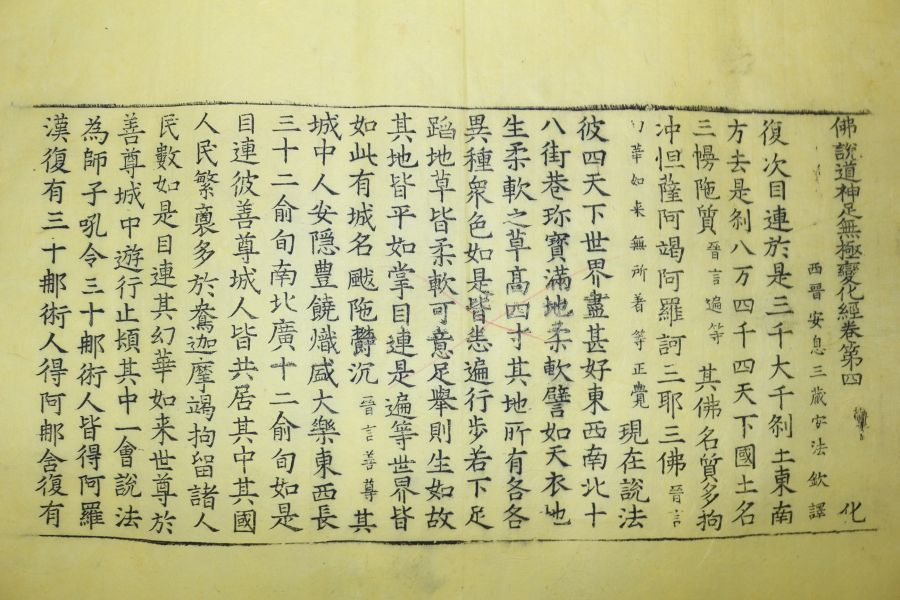 佛說道神足無極變化經卷第四 化
西晉安息三藏安法欽譯
復次目連於是三千大千剎土東南
方去是剎八万四千四天下國土名
三幔陁質晉言遍等其佛名質多拘
沖怛薩阿竭阿羅訶三耶三佛晉言
幻華如来無所著等正覺現在說法
彼四天下世界盡甚好東西南北十
八街巷珎寶滿地柔軟譬如天衣地
生柔軟之草高四寸其地所有各各
異種衆色如是皆悉遍行步若下足
蹈地草皆柔軟可意足舉則生如故
其地皆平如掌目連是遍等世界皆
如此有城名颰陁欝沉晉言善尊其
城中人安隱豊饒熾盛大樂東西長
三十二俞旬南北廣十二俞旬如是
目連彼善尊城人皆共居其中其國
人民繁裛多於鴦迦摩竭拘留諸人
民數如是目連其幻華如来世尊於
善尊城中遊行止頓其中一會說法
為師子吼令三十那術人皆得阿羅
漢復有三十那術人得阿那含復有